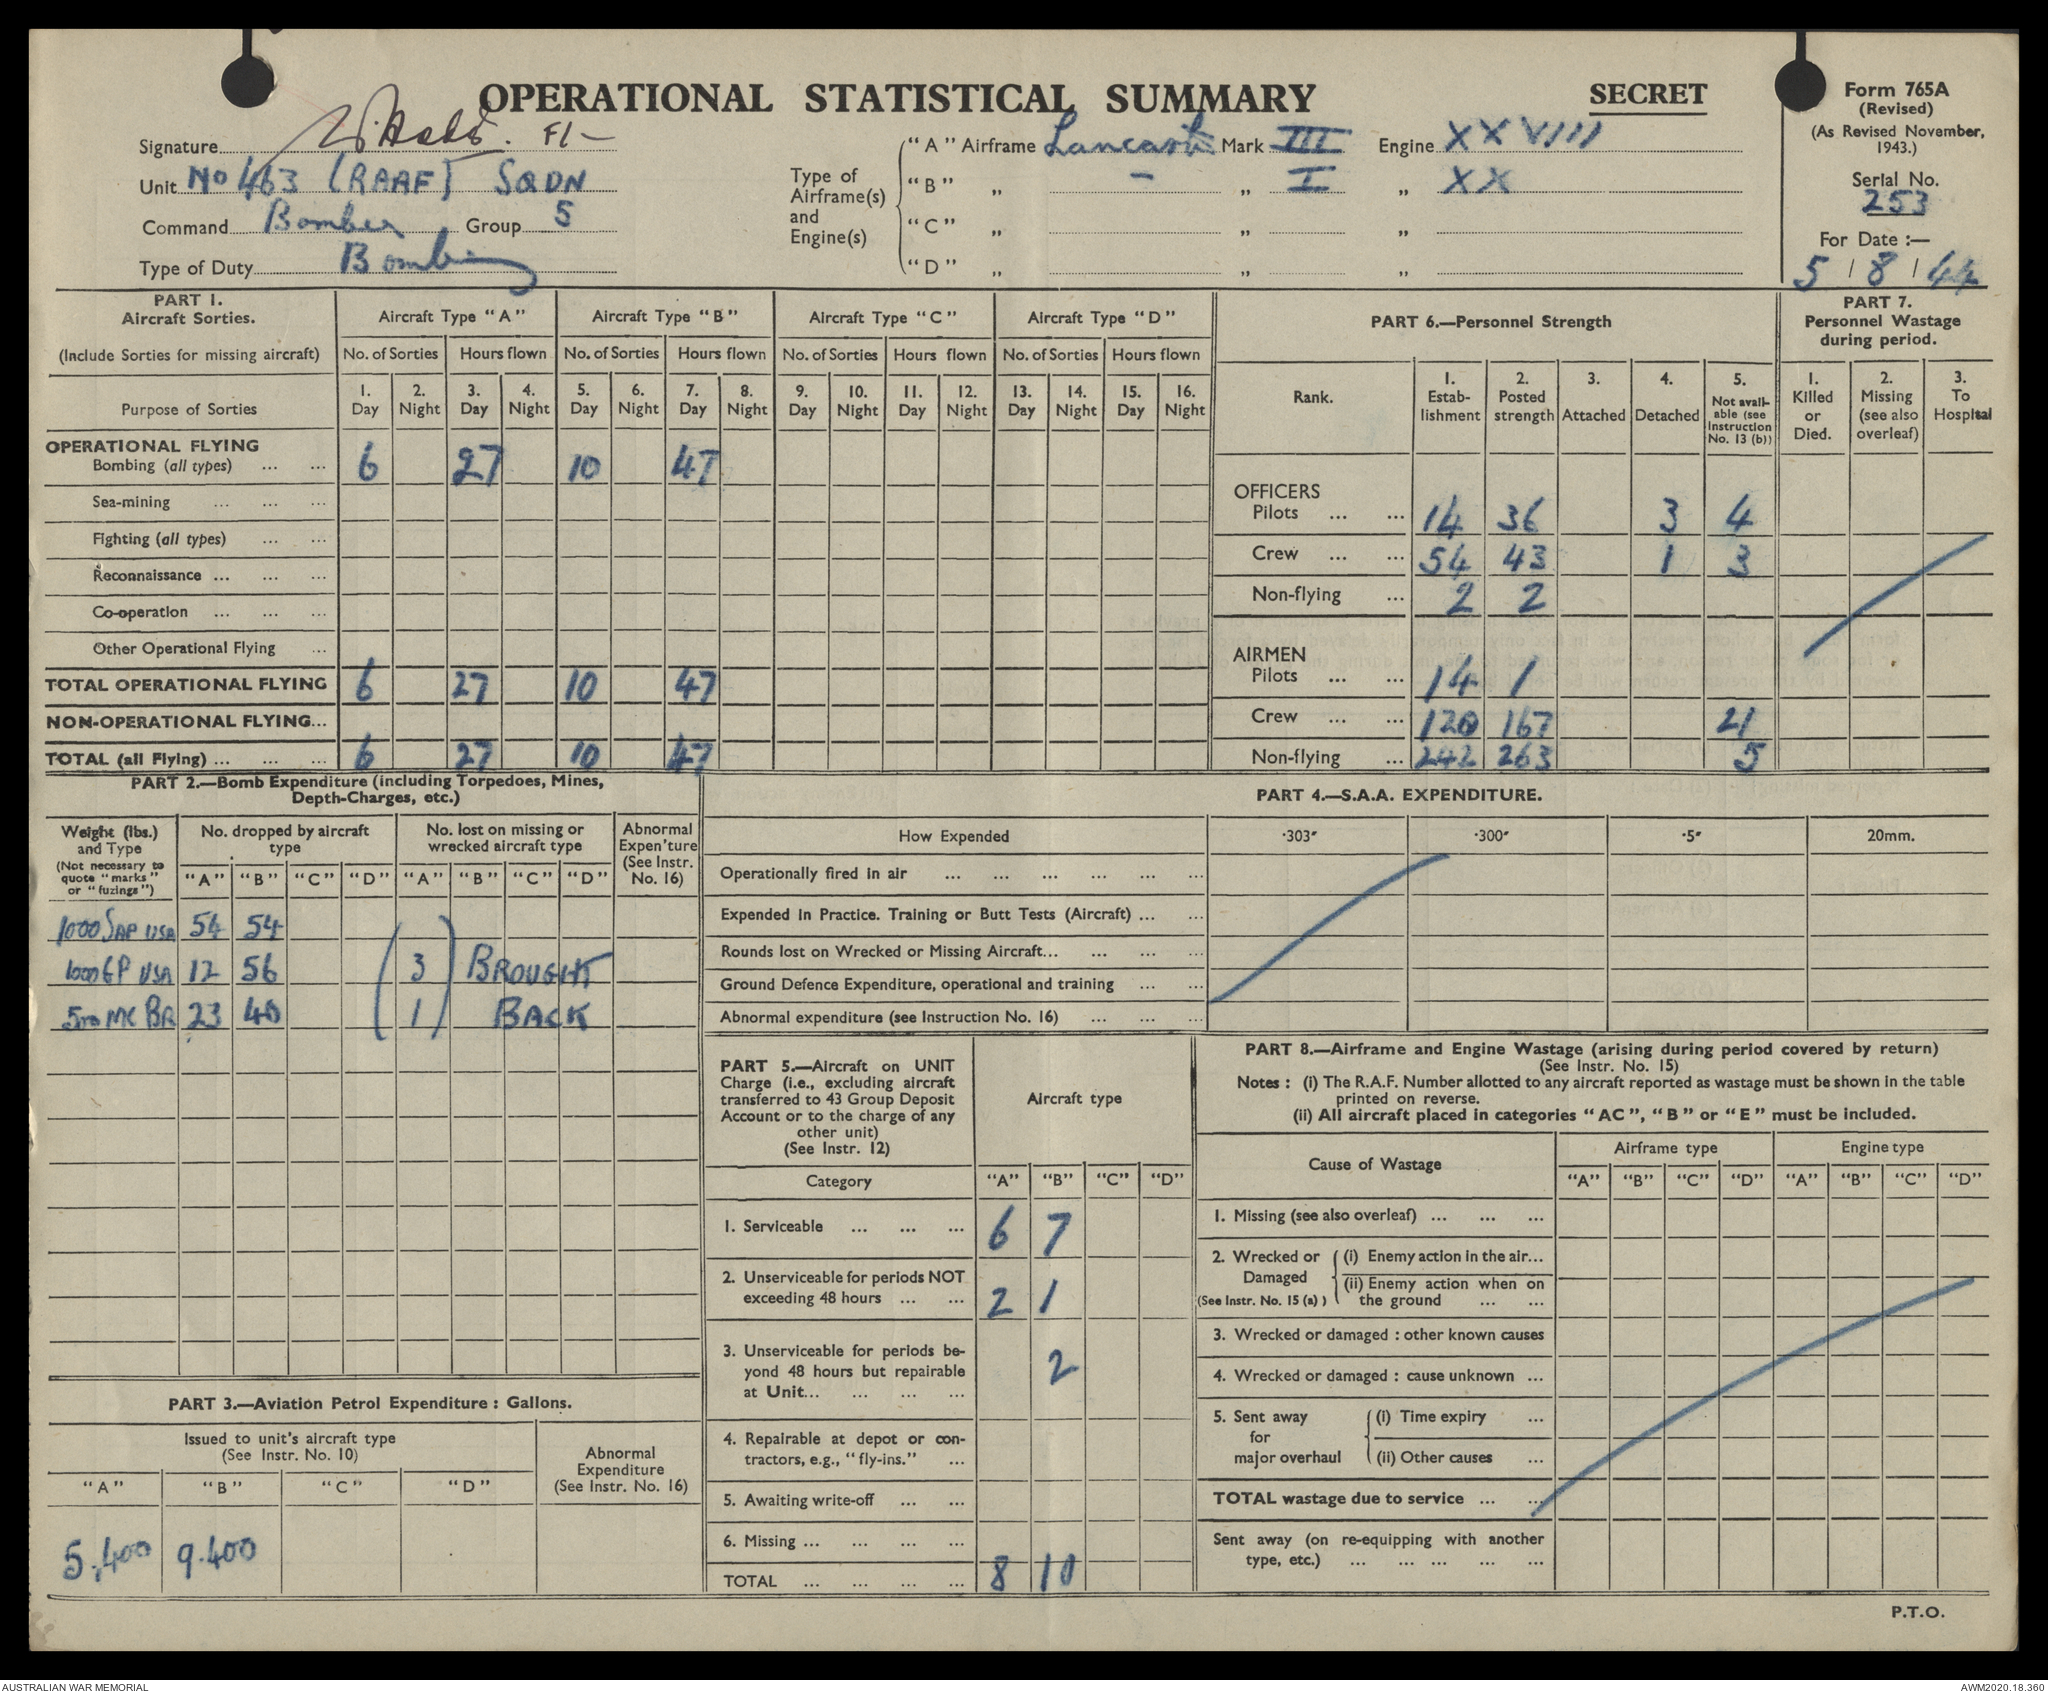 OPERATIONAL STATISTICAL SUMMARY
SECRET
Form 765A
(Revised)
(As Revised November, 1943.)
Serial No.
253
For Date :—
5 / 8 / 44
Signature F/-
Unit No 463 (RAAF) SQDN
Command Bomber Group 5
Type of Duty Bombing
Type of Airframe(s) and Engine(s)
"A" Airframe Lancaster Mark III Engine XXVIII
"B" „ - „ I „ XX
"C" „ „ „
"D" „ „ „
PART 1.
Aircraft Sorties.
(Include Sorties for missing aircraft)
Aircraft Type "A" Aircraft Type "B" Aircraft Type "C" Aircraft Type "D"
No. of Sorties Hours flown No. of Sorties Hours flown No. of Sorties Hours flown No. of Sorties Hours flown
Purpose of Sorties
1. Day 2. Night 3. Day 4. Night 5. Day 6. Night 7. Day 8. Night 9. Day 10. Night 11. Day 12. Night 13. Day 14. Night 15. Day 16. Night
OPERATIONAL FLYING
Bombing (all types) ... ... 6 27 10 47
Sea-mining ... ... ...
Fighting (all types) ... ...
Reconnaissance ... ... ...
Co-operation ... ... ...
Other Operational Flying ...
TOTAL OPERATIONAL FLYING 6 27 10 47
NON-OPERATIONAL FLYING...
TOTAL (all Flying) ... ... ... 6 27 10 47
PART 6.—Personnel Strength
Rank.
1. Estab-lishment
2. Posted strength
3. Attached
4. Detached
5. Not avail-able (see Instruction No. 13 (b))
OFFICERS
Pilots ... ... 14 36 3 4
Crew ... ... 54 43 1 3
Non-flying ... 2 2
AIRMEN
Pilots ... ... 14 1
Crew ... ... 120 167 21
Non-flying ... 242 263 5
PART 7.
Personnel Wastage during period.
1. Killed or Died.
2. Missing (see also overleaf)
3. To Hospital
PART 2.—Bomb Expenditure (including Torpedoes, Mines, Depth-Charges, etc.)
Weight (lbs.) and Type
(Not necessary to quote "marks" or "fuzings")
No. dropped by aircraft type
No. lost on missing or wrecked aircraft type
Abnormal Expen'ture (See Instr. No. 16)
"A" "B" "C" "D" "A" "B" "C" "D"
1000 SAP USA 54 54
1000 GP USA 12 56 ( 3 ) BROUGHT
500 MC BR 23 40 ( 1 ) BACK
PART 3.—Aviation Petrol Expenditure : Gallons.
Issued to unit's aircraft type
(See Instr. No. 10)
Abnormal Expenditure (See Instr. No. 16)
"A" "B" "C" "D"
5,400 9.400
PART 4.—S.A.A. EXPENDITURE.
How Expended ·303" ·300" ·5" 20mm.
Operationally fired in air ... ... ... ... ... ...
Expended in Practice. Training or Butt Tests (Aircraft) ... ...
Rounds lost on Wrecked or Missing Aircraft... ... ... ...
Ground Defence Expenditure, operational and training ... ...
Abnormal expenditure (see Instruction No. 16) ... ... ...
PART 5.—Aircraft on UNIT Charge (i.e., excluding aircraft transferred to 43 Group Deposit Account or to the charge of any other unit)
(See Instr. 12)
Aircraft type
Category "A" "B" "C" "D"
1. Serviceable ... ... ... 6 7
2. Unserviceable for periods NOT exceeding 48 hours ... ... 2 1
3. Unserviceable for periods be-yond 48 hours but repairable at Unit... ... ... ... 2
4. Repairable at depot or con-tractors, e.g., "fly-ins." ...
5. Awaiting write-off ... ...
6. Missing ... ... ... ...
TOTAL ... ... ... ... 8 10
PART 8.—Airframe and Engine Wastage (arising during period covered by return)
(See Instr. No. 15)
Notes : (i) The R.A.F. Number allotted to any aircraft reported as wastage must be shown in the table printed on reverse.
(ii) All aircraft placed in categories "AC", "B" or "E" must be included.
Cause of Wastage
Airframe type Engine type
"A" "B" "C" "D" "A" "B" "C" "D"
1. Missing (see also overleaf) ... ... ...
2. Wrecked or Damaged (See Instr. No. 15 (a) )
(i) Enemy action in the air...
(ii) Enemy action when on the ground ... ...
3. Wrecked or damaged : other known causes
4. Wrecked or damaged : cause unknown ...
5. Sent away for major overhaul
(i) Time expiry ...
(ii) Other causes ...
TOTAL wastage due to service ... ...
Sent away (on re-equipping with another type, etc.) ... ... ... ... ...
P.T.O.
AUSTRALIAN WAR MEMORIAL
AWM2020.18.360